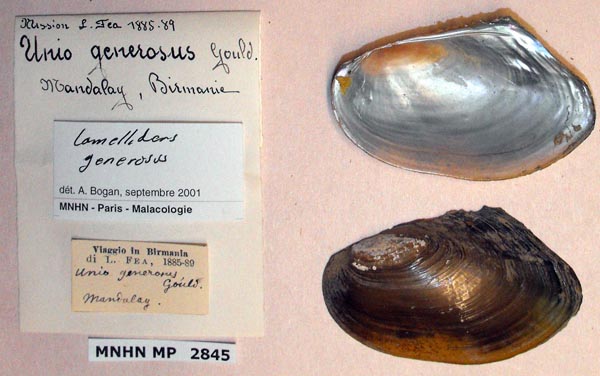 Mission L. Fea 1885-89
Unio generosus Gould.
Mandalay, Birmanie
Lamellidens
generosus
dét. A. Bogan, septembre 2001
MNHN - Paris - Malacologie
Viaggio in Birmania
di L. FEA, 1885-89
Unio generosus
Gould.
Mandalay.
MNHN MP 2845